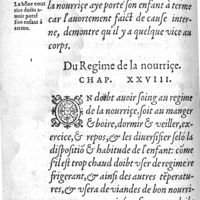 la nourrice aye porté son enfant a terme
La bõne nour
rice doibt a-
uoir porté
son enfant a
terme.
car l'auortement faict de cause inter
ne, demonstre qu'il y a quelque vice au
corps.
Du Regime de la nourriçe.
CHAP. XXVIII.
ON doibt auoir soing au regime
de la nourriçe, soit au manger
& boire, dormir & veiller, ex-
ercice, & repos, & les diuersifier selõ la
dispositiõ & habitude de l'enfant: cõme
s'il est trop chaud doibt vser de regime re
frigerant, & ainsi des autres tẽperatu-
res, & vsera de viandes de bon nourri-